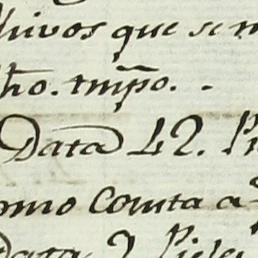 hivos que se
ho. tmpo. .
Data 42. Pi
omo consta a
Data 2 Piele